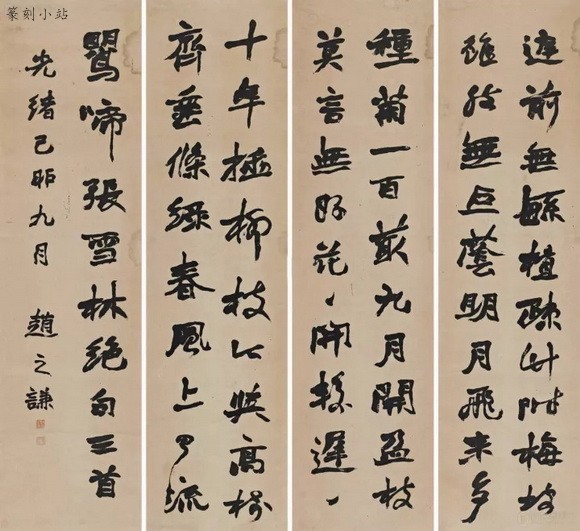 篆刻小站
前無緐植疎竹附梅坡
雖然無巨蔭明月飛来多
種菊一百畝九月開盈枝
莫言無好花、開較遲、
十年插柳枝今與高
齊垂條綠春風上有流
鸎啼張雪林绝句三首
光緒己卯九月 趙之謙